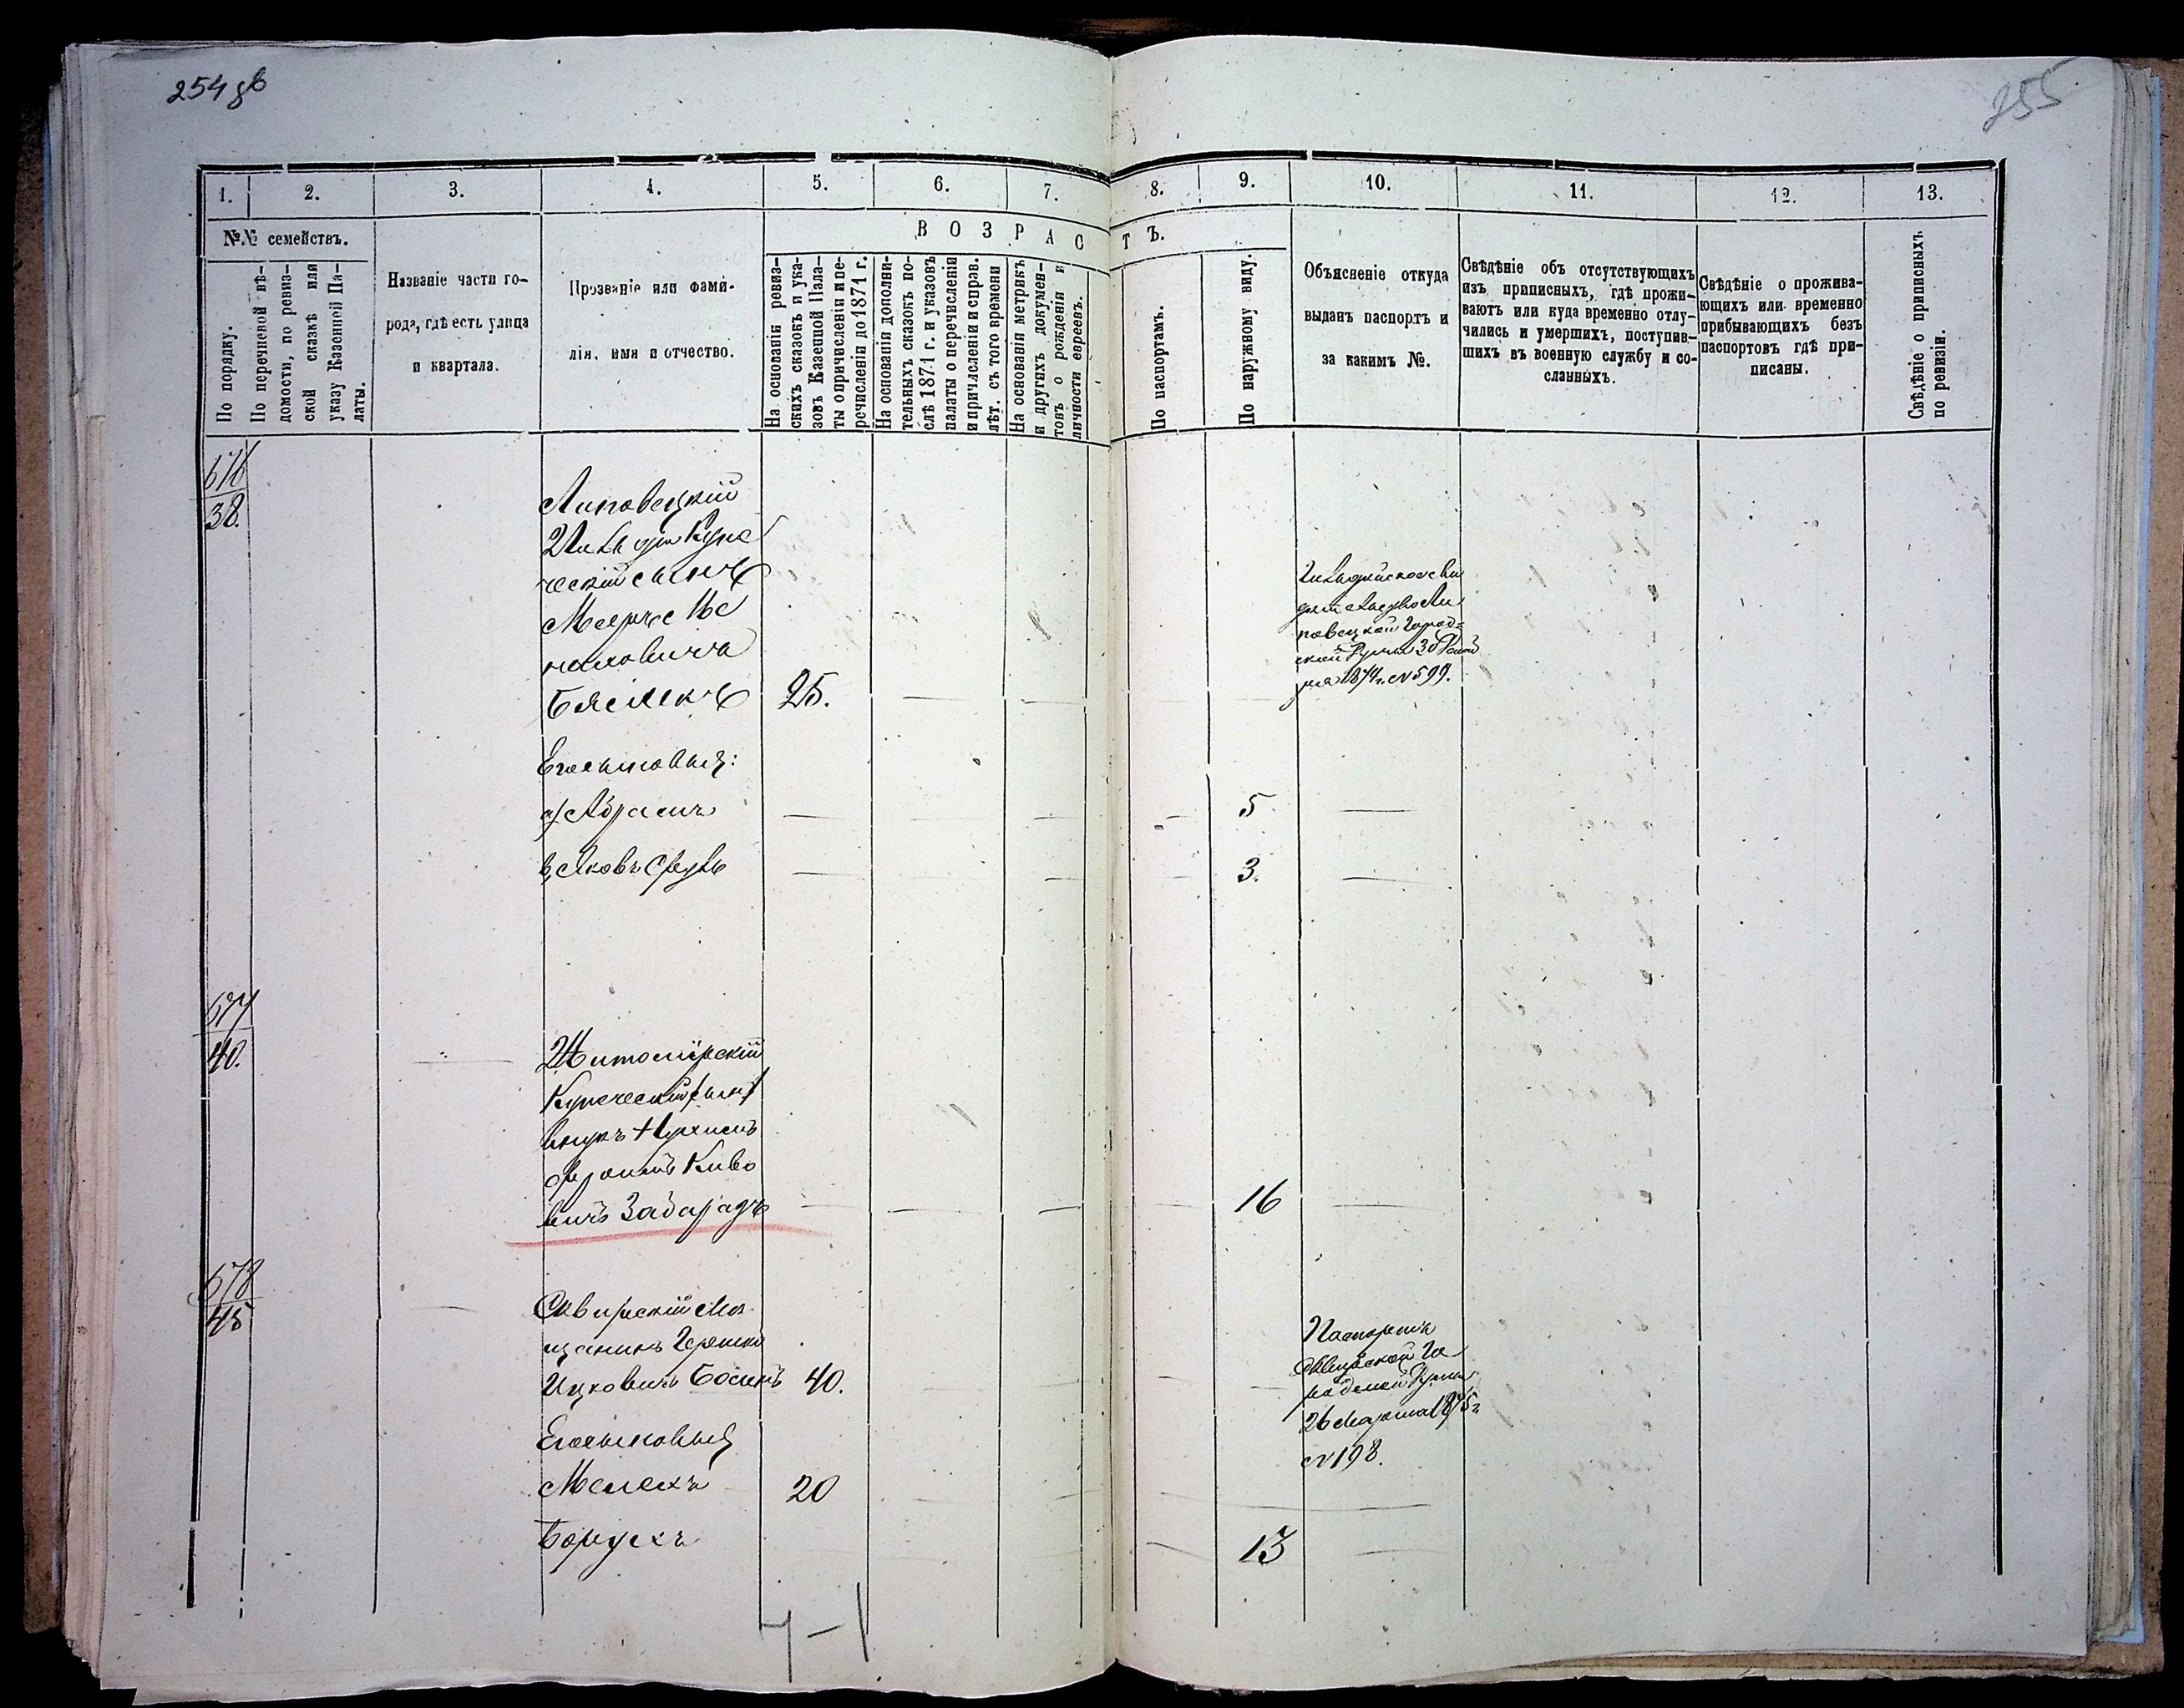 254 зв
255
1. 2. 3. 4. 5. 6. 7. 8. 9. 10. 11. 12. 13.
№№ семействъ.
По порядку.
По перечневой вѣ-
домости, по ревиз-
ской сказкѣ или
указу Казенной Па-
латы.
Названіе части го-
рода, гдѣ есть улица
и квартала.
Прозваніе или фами-
лія, имя и отчество.
ВОЗРАСТЪ.
На основаніи ревиз-
скихъ сказокъ и ука-
зовъ Казенной Пала-
ты о причисленіи и пе-
речисленіи до 1871 г.
На основаніи дополни-
тельныхъ сказокъ по-
слѣ 1871 г. и указовъ
палаты о перечисленіи
и причисленіи и справ.
лѣт. съ того времени
На основаніи метрикъ
и другихъ докумен-
товъ о рожденіи и
личности евреевъ.
По паспортамъ.
По наружному виду.
Объясненіе откуда
выданъ паспортъ и
за какимъ №.
Свѣдѣніе объ отсутствующихъ
изъ приписныхъ, гдѣ прожи-
ваютъ или куда временно отлу-
чились и умершихъ, поступив-
шихъ въ военную службу и со-
сланныхъ.
Свѣдѣніе о прожива-
ющихъ или временно
прибывающихъ безъ
паспортовъ гдѣ при-
писаны.
Свѣдѣніе о приписныхъ
по ревизіи.
676
38.
Липовецкій
2й Гильдіи Купе
ческій сынъ
Мееръ
Бяликъ 25.
Гильдійское сви
дѣтельство Ли
повецкой Город-
ской Думы 30 Декаб
ря 1874 г. № 599.
Его сыновья:
а) Абрамъ 5
в, Яковъ Сруль 3.
677
40.
Житомірскій
Купеческій сынъ
внукъ Нухимъ
Фроимъ Киво
вичъ Забарадъ 16
678
45
Сквирскій Мѣ
щанинъ Гершко
Ицковичъ 40.
Паспортъ
Сквирской Го
родской Думы
26 Марта 1875 г
№ 198.
Его сыновья
Мелехъ 20
Борухъ 13